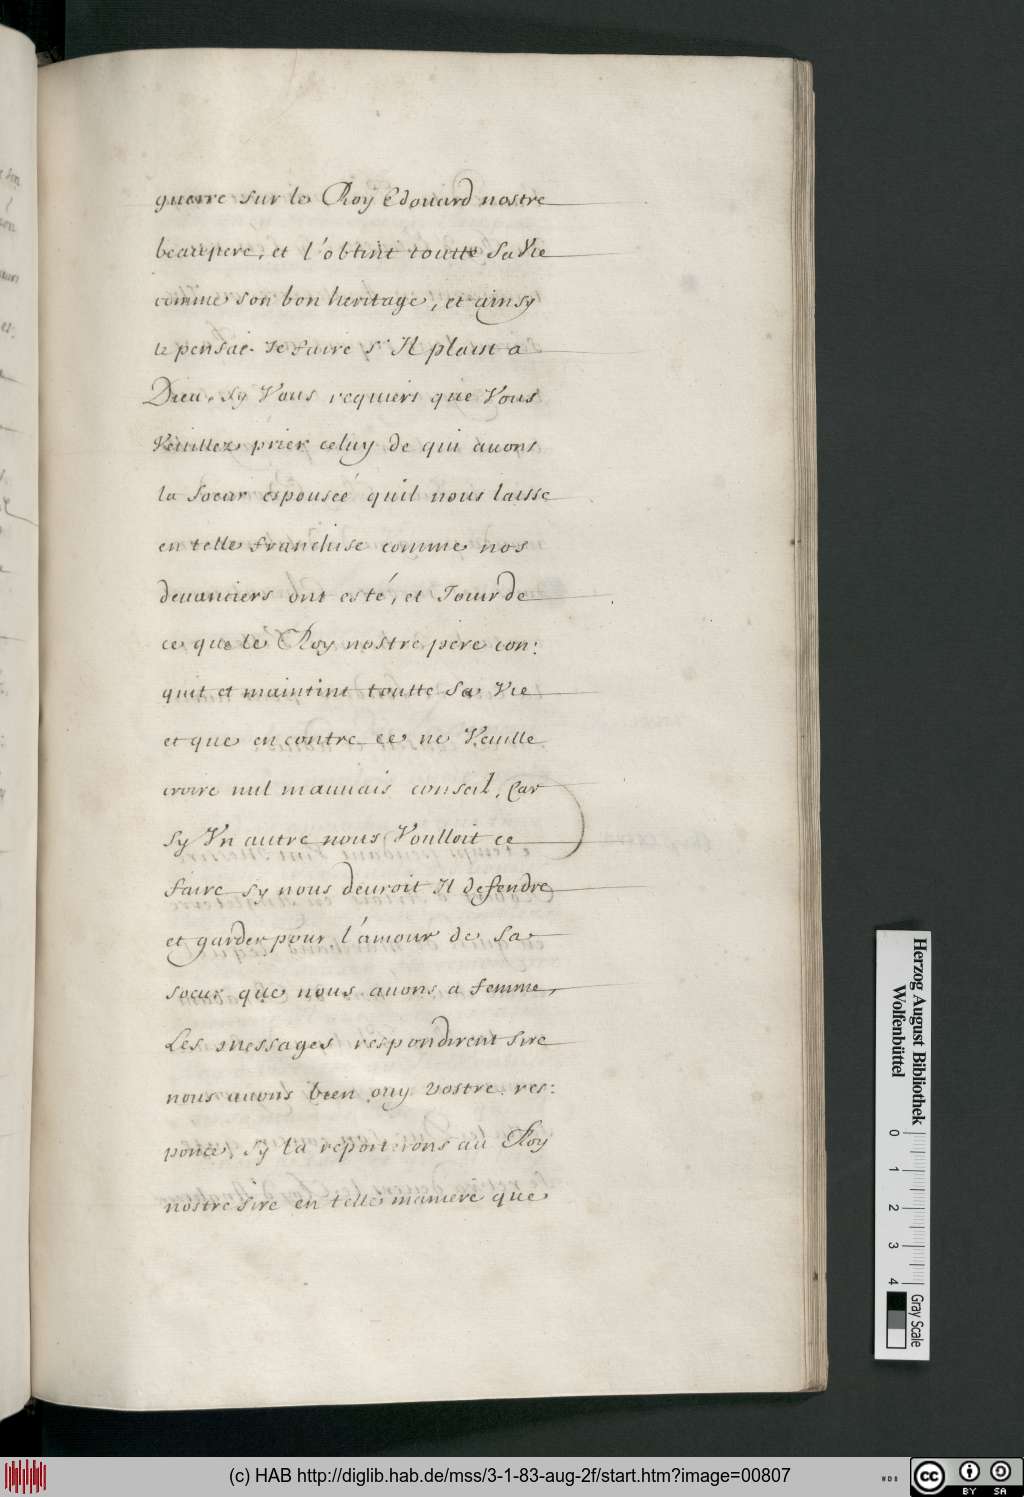 guerre sur le Roy Edouard nostre
beaupere, et l'obtint toutte sa Vie
comme son bon heritage, et ainsy
le pensai-Je faire s'Il plaist a
Dieu, sy Vous requiers que Vous
Veuillez prier celuy de qui auons
la soeur espouseé quil nous laisse
en telle franchise comme nos
deuanciers ont esté, et Jouir de
ce que le Roy nostre pere con:
quit et maintint toutte sa Vie
et que en contre ce ne Veuille
croire nul mauuais conseil, Car
sy Vn autre nous Voulloit ce
faire sy nous deuroit Il defendre
et garder pour l'amour de sa
soeur que nous auons a femme,
Les messages respondirent sire
nous auons bien ouy vostre res:
ponce, sy la reporterons au Roy
nostre sire en telle maniere que
Herzog August Bibliothek
Wolfenbüttel
0 1 2 3 4
Gray Scale
(c) HAB http://diglib.hab.de/mss/3-1-83-aug-2f/start.htm?image=00807
WDB
cc BY SA